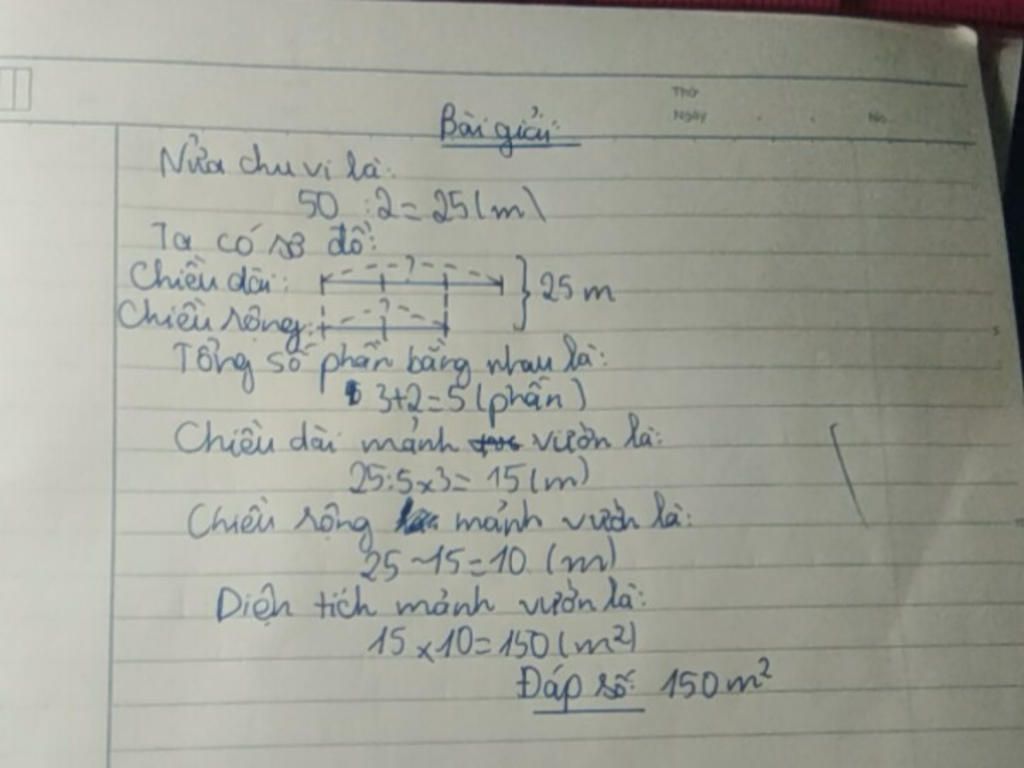 Thứ
Ngày . . No.
Bài giải:
Nửa chu vi là:
50 : 2 = 25 (m)
Ta có sơ đồ:
Chiều dài: ? } 25 m
Chiều rộng: ?
Tổng số phần bằng nhau là:
3+2=5 (phần)
Chiều dài mảnh vườn là:
25:5x3= 15 (m)
Chiều rộng mảnh vườn là:
25-15=10 (m)
Diện tích mảnh vườn là:
15 x 10=150 (m²)
Đáp số: 150 m²